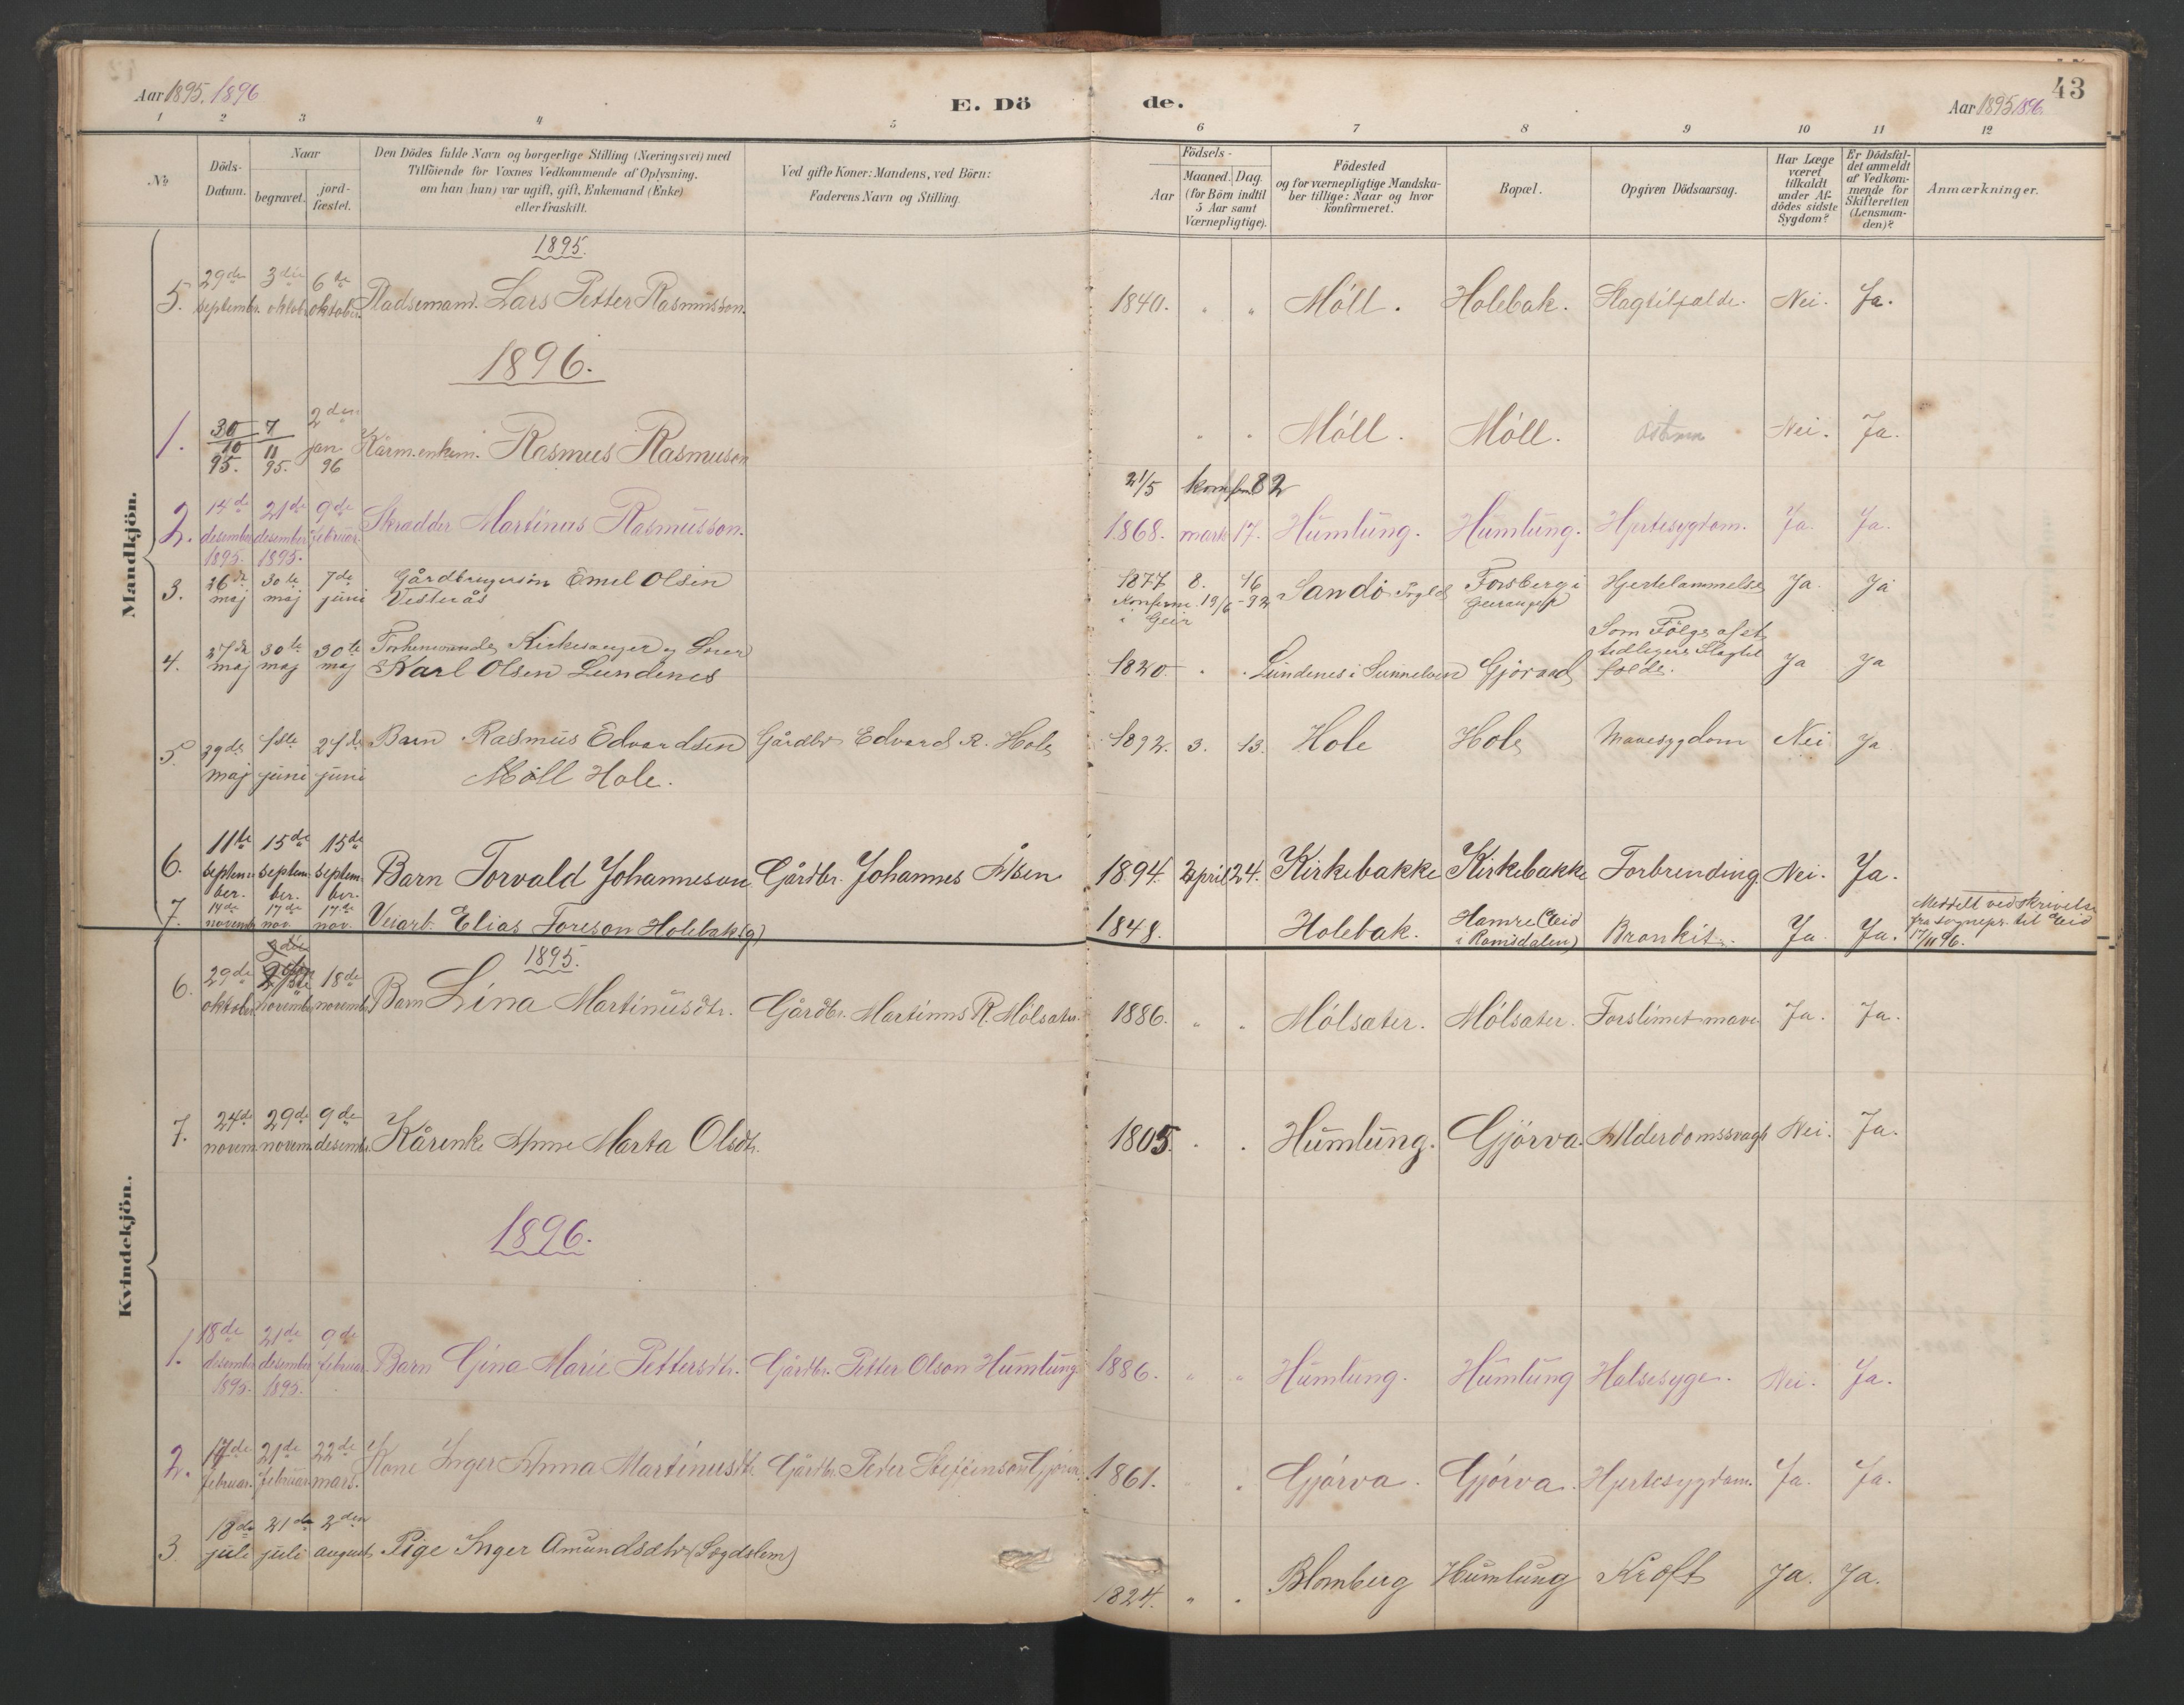 43
Aar 1895. 1896
E. Dö de.
Aar 1895 1896.
1 2 3 4 5 6 7 8 9 10 11 12
No
Döds-Datum.
Naar
begravet.
jord-fæstet.
Den Dödes fulde Navn og borgerlige Stilling (Næringsvei) med
Tilföiende for Voxnes Vedkommende af Oplysning,
om han (hun) var ugift, gift, Enkemand (Enke)
eller fraskilt.
Ved gifte Koner: Mandens, ved Börn:
Faderens Navn og Stilling.
Födsels-
Aar
Maaned. Dag.
(for Börn indtil
5 Aar samt
Værnepligtige).
Födested
og for værnepligtige Mandska-
ber tillige: Naar og hvor
konfirmeret.
Bopæl.
Opgiven Dödsaarsag.
Har Læge
været
tilkaldt
under Af-
dödes sidste
Sygdom?
Er Dödsfal-
det anmeldt
af Vedkom-
mende for
Skifteretten
(Lensman-
den)?
Anmærkninger.
Mandkjön.
1895.
5. 29de september. 3die oktob. 6te oktober. Pladsemand. Lars Petter Rasmusson. 1840. " " Möll. Holebak. Slagtilfælde. Nei. Ja.
1896.
1. 30/10 95. 7/11 95. 2den jan 96 Kårm.enkem. Rasmus Rasmuson " " Möll. Möll. Nei. Ja.
21/5 konfirm 82
2. 14de desember 1895. 21de desember 1895. 9de februar. Skradder Martinus Rasmusson. 1868. marts 17. Humlung. Humlung. Hjertesygdom. Ja. Ja.
3. 26de maj 30te maj 7de juni Gårdbrugersön Emel Olsen
Vesterås 1877 8. 16 Sandö Forsberg i
Geiranger Hjertelammelse Ja. Ja
Konfirm. 19/6-92
i Geir
4. 27de maj 30te maj 30te maj Forhenværende Kirkesanger og
Karl Olsen Lundenes 1820. . . Lundenes i Sunnelven Gjörvad Som Fölge af et
tidligere Slagtil
fælde. Ja Ja
5. 29de maj 1ste juni 21de juni Barn Rasmus Edvardsen
Möll Hole. Gårdbr Edvard R. Hole 1892. 3. 13. Hole Hole Mavesygdom Nei Ja
6. 11te september. 15de september. 15de september. Barn Torvald Johanneson Gårdbr. Johannes Ålsen 1894. april 24. Kirkebakke Kirkebakke Forbrending. Nei. Ja.
7. 14de novemb 17de nov. 17de nov. Veiarb. Elias Toreson Holebak (g) 1848. Holebak. Hamre (Eid
i Romsdalen) Bronkit. Ja. Ja. Meddelt ved skrivelse
fra sognepr. til Eid
17/11 96.
Kvindekjön.
1895.
6. 29de oktober. november 18de novemb. Barn Lina Martinusdtr. Gårdbr. Martinus R. Mölsater. 1886. " " Mölsater. Mölsater. Forslimet mave Ja. Ja.
7. 24de novem. 29de novem. 9de desembr. Kårenke Anne Marta Olsdtr. 1805. . . Humlung. Gjörva. Alderdomssvagh Nei. Ja.
1896.
1. 18de desember 1895. 21de desember 1895. 9de februar. Barn Gina Marie Pettersdtr. Gårdbr. Petter Olson Humlung. 1886. " " Humlung. Humlung Halsesyge. Nei. Ja.
2. 17de februar. 21de februar. 22de mars. Kone Inger Anna Martinusdtr Gårdbr. Peder Steffenson Gjörva. 1861. . Gjörva. Gjörva. Hjertesygdom. Ja. Ja.
3. 18de juli 21de juli 2den august Pige Inger Amundsdtr (Legdslem) 1824. " . Blomberg Humlung Kræft Ja. Ja.